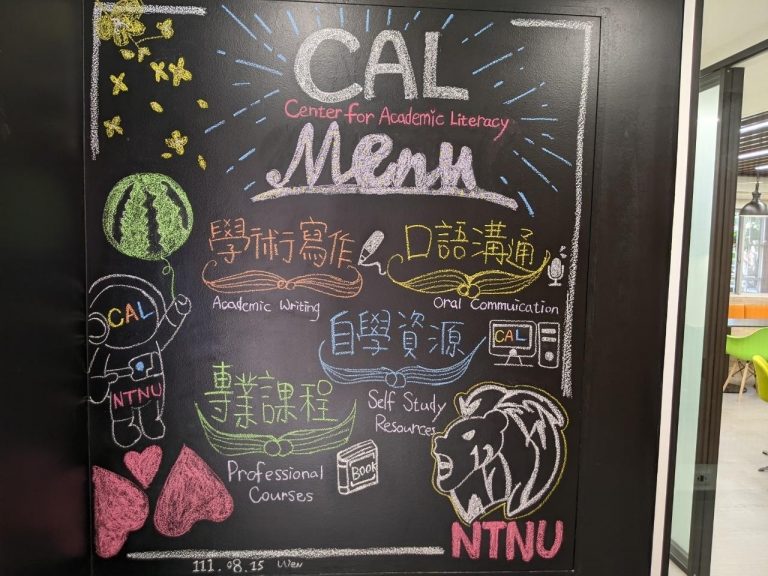 CAL
Center for Academic Literacy
Menu
學術寫作
Academic Writing
口語溝通
Oral Commuication
CAL
NTNU
自學資源
CAL
Self Study
Resources
專業課程
Professional
Courses
BOOK
NTNU
111.08.15 Wen